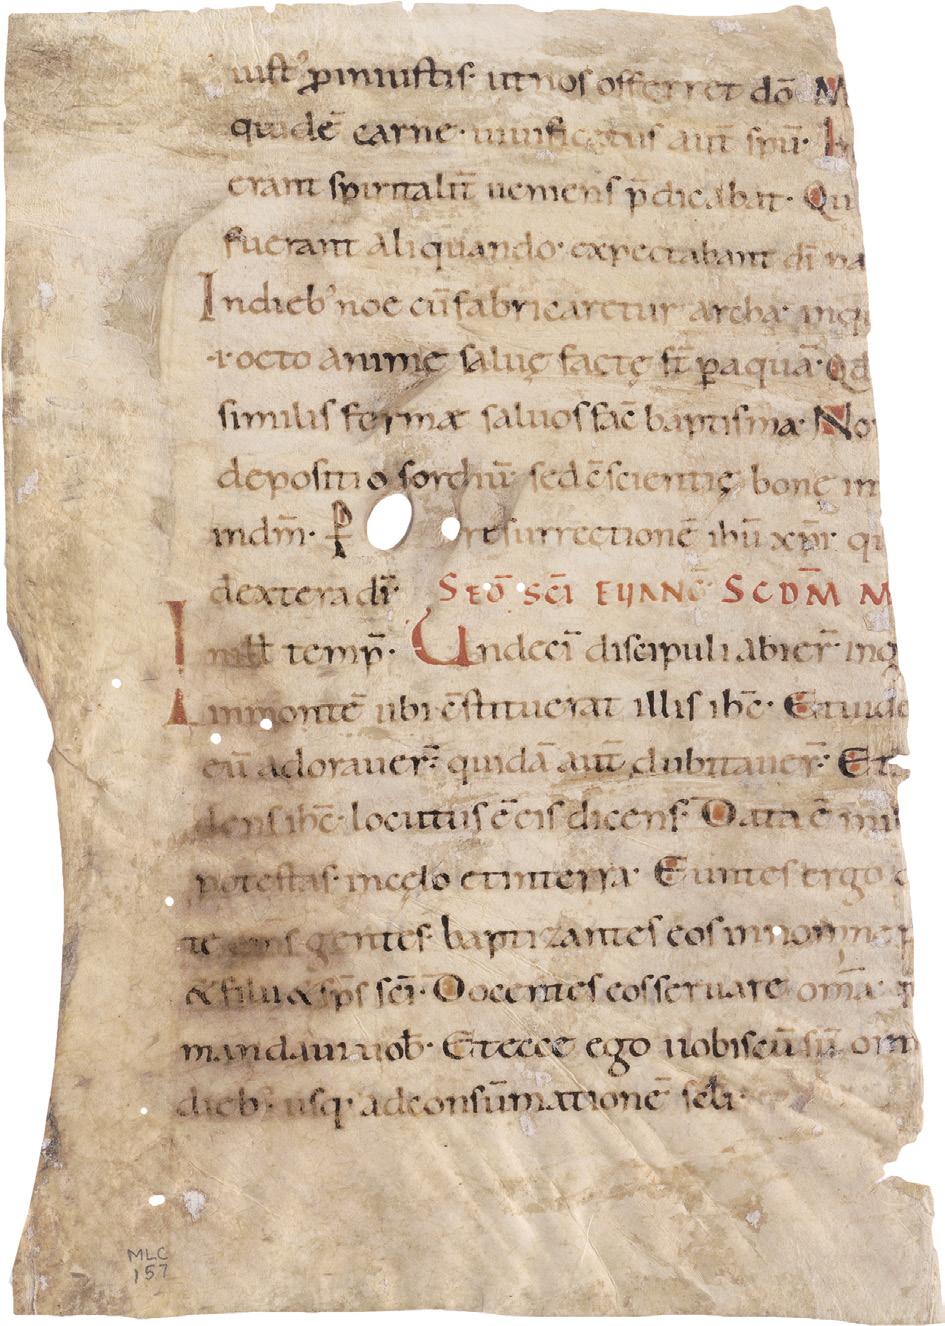 iust' ꝓ iniustis· ut nos offerret dō M
quidē carne· uiuificatus aūt spū· I
erant spiritalit̄ ueniens p̄dicabat· Qui
fuerant aliquando· expectabant dī pa
In dieb' noe cū fabricaretur archa· in q
·i· octo animę saluę factę st̄ ꝑ aquā· Qd
similis formæ saluos fac̄ baptisma· No
depositio sordiū· sed c̄scientię bonę in
in dm̄· P resurrectionē ihū xp̄i· qi
dextera dī· SEQ̄ SC̄I EUANḠ SCDM̄ M
In ill̄ temp̄· Undecī discipuli abier̄ in g
in montē ubi c̄stituerat illis ihc̄· Et uide
eū adorauer̄· quidā aūt dubitauer̄· Et
dens ihc̄· locutus ē eis dicens· Data ē mi
potestas· in cęlo et in terra· Euntes ergo
te gentes· baptizantes eos in nomine p
& filii & sp̄s sc̄i· Docentes eos seruare om̄a· q
mandaui uob̄· Et ecce ego uobiscū sū om
dieb· usq· ad consūmationē sc̄li·
MLC
157